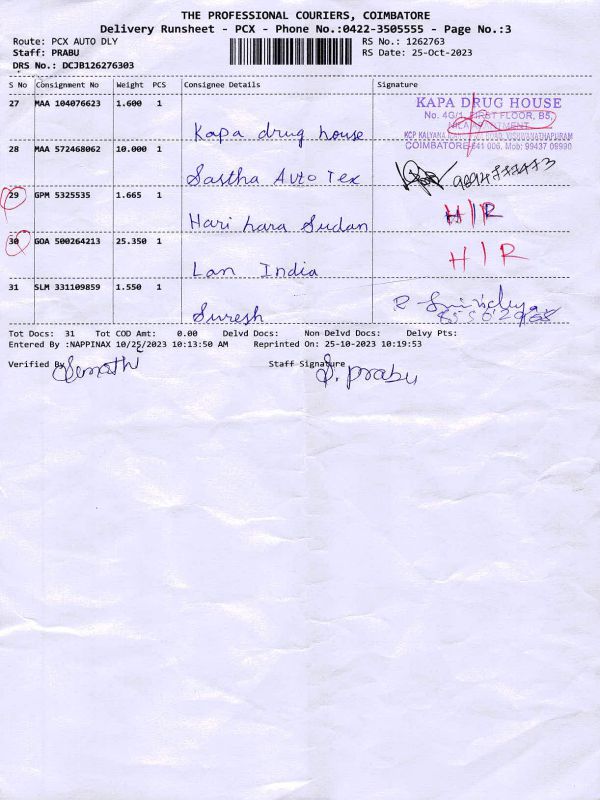 THE PROFESSIONAL COURIERS, COIMBATORE
Delivery Runsheet - PCX - Phone No.:0422-3505555 - Page No.:3
Route: PCX AUTO DLY RS No.: 1262763
Staff: PRABU RS Date: 25-Oct-2023
DRS No.: DCJB126276303
S No Consignment No Weight PCS Consignee Details Signature
27 MAA 104076623 1.600 1 KAPA DRUG HOUSE
No. 4G/1, FIRST FLOOR, B5,
Kapa drug house KCP KALYANA VISWANATHAPURAM
COIMBATORE-641 006. Mob: 99437 09990
28 MAA 572468062 10.000 1
Sastha Auto Tex
29 GPM 5325535 1.665 1 H/R
Hari hara Sudan
30 GOA 500264213 25.350 1 H/R
Lan India
31 SLM 331109859 1.550 1
Suresh
Tot Docs: 31 Tot COD Amt: 0.00 Delvd Docs: Non Delvd Docs: Delvy Pts:
Entered By :NAPPINAX 10/25/2023 10:13:50 AM Reprinted On: 25-10-2023 10:19:53
Verified By Staff Signature
S. prabu